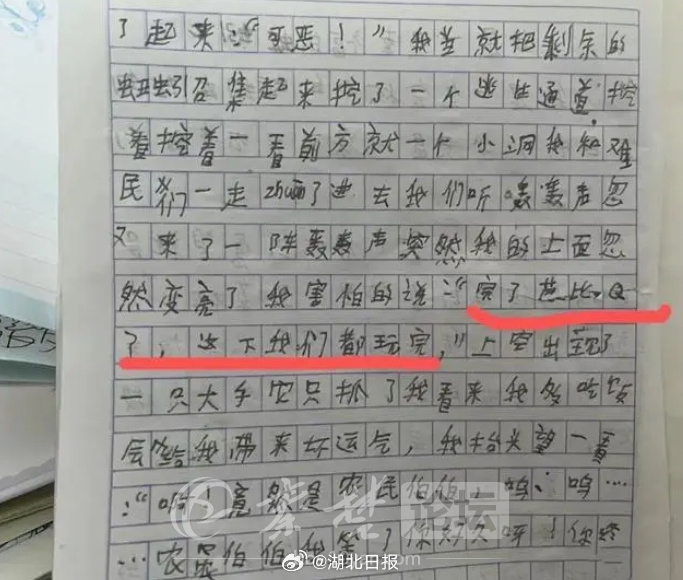 了起来:“可恶!”我并就把剩余的
蚯蚓召集起来挖了一个逃生通道,挖
着挖着一看前方就一个小洞我和难
民们一走zhuan了进去我们听轰轰声忽
又来了一阵轰轰声突然我的上面忽
然变亮了我害怕的说:“完了芭比Q
了,这下我们都玩完,”上空出现了
一只大手它只抓了我看来我多吃饭
会给我带来坏运气,我抬头望一看
:“啊竟然是农民伯伯,呜、呜…
…农民伯伯我等了你好久呀!你终
秦楚论坛
@湖北日报